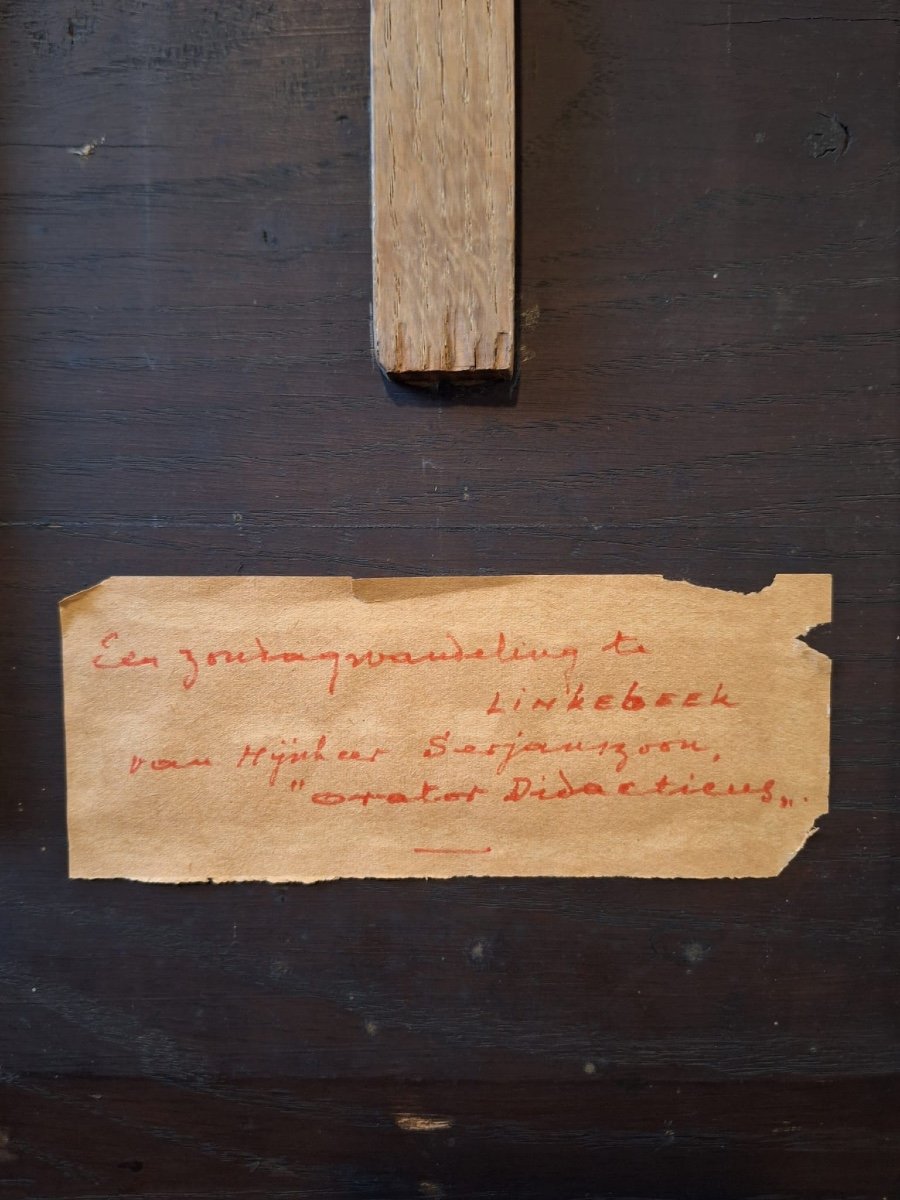 Een zondagwandeling te
LINKEBEEK
van Mijnheer Serjanszoon,
"orator Didacticus„.